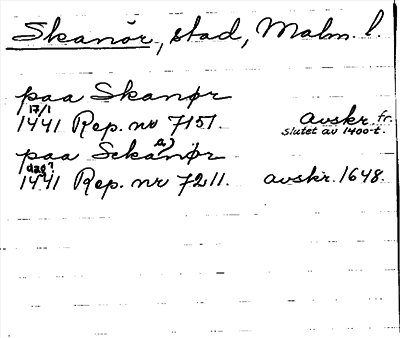 Skanör, stad, Malm. l.
paa Skanør
17/1
1441 Rep. nr 7151 avskr. fr.
slutet av 1400-t.
paa Sckanør a)
dag?
1441 Rep. nr 7211. avskr. 1648.